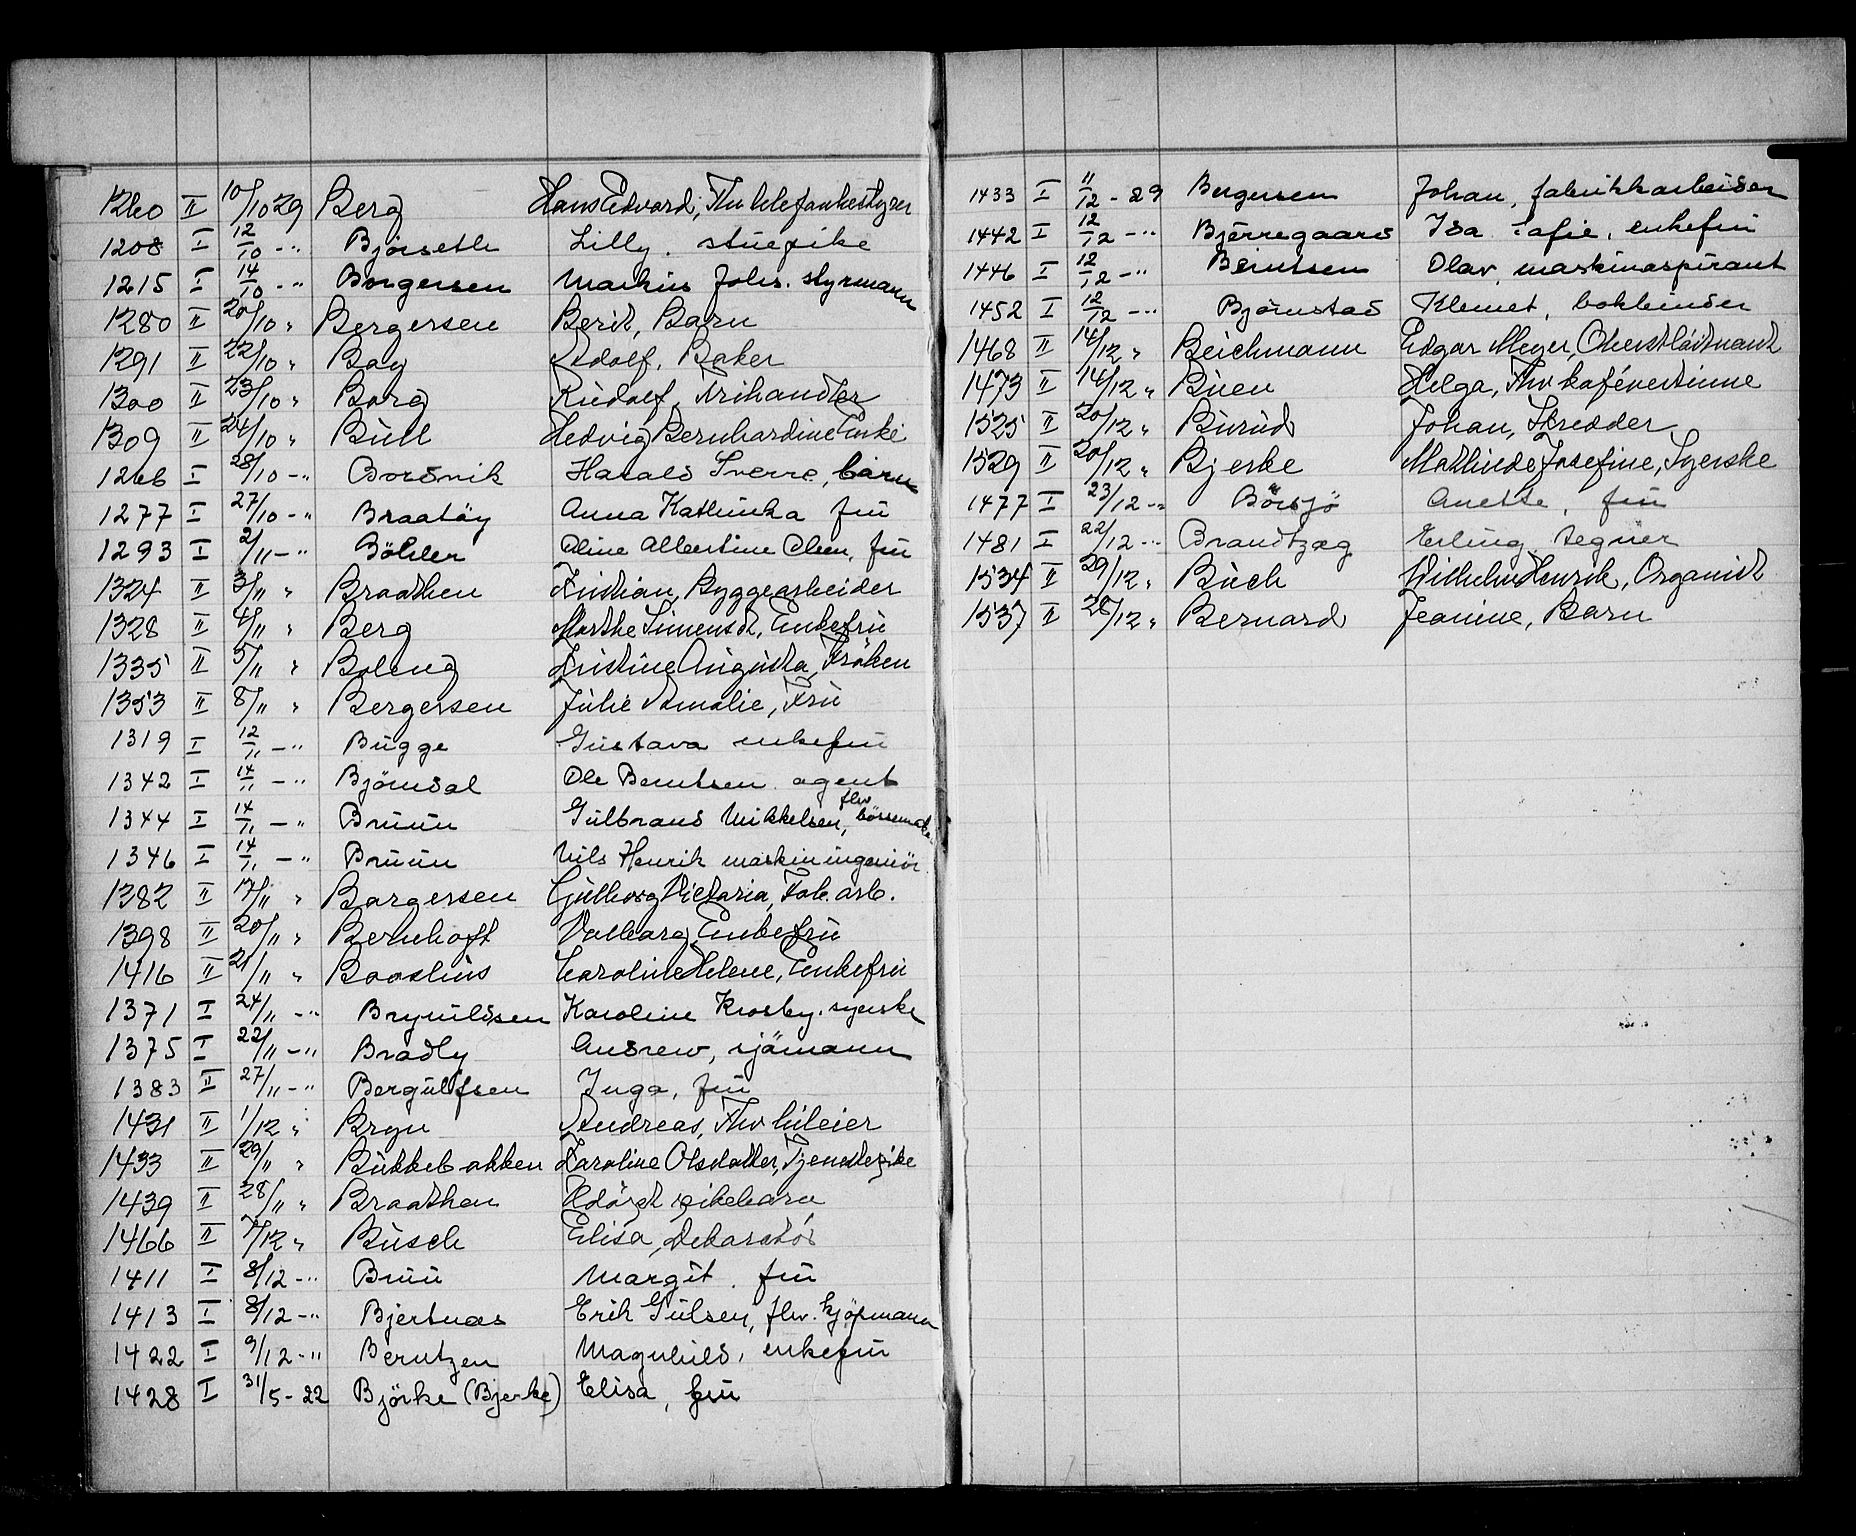 1260 II 10/10 29 Berg Hans Edvard, Fhv telefonbestyrer
1208 I 12/10 -" Björseth Lilly, stuepike
1215 I 14/10 -" Borgersen Markus Johs. styrmann
1280 II 20/10 " Bergersen Berit, Barn
1291 II 22/10 " Bay Adolf, Baker
1300 II 23/10 " Borg Rudolf, Trihandler
1309 II 24/10 " Bull Hedvig Bernhardine Enke
1266 I 28/10 -" Bordvik Harald Sverre, barn
1277 I 27/10 -" Braatöy Anna Kathinka fru
1293 I 2/11 -" Böhler Oline Albertine Olsen, fru
1324 II 3/11 " Braathen Kristian, Byggearbeider
1328 II 4/11 " Berg Marthe Simensdt, Enkefru
1335 II 5/11 " Boleng Kristine Augusta, Fröken
1353 II 8/11 " Bergersen Julie Amalie, Fru
1319 I 12/11 -" Bugge Gustava enkefru
1342 I 14/11 -" Björndal Ole Berntsen agent
1344 I 14/11 -" Bruun Gulbrand Mikkelsen, fhv. börsemak
1346 I 14/11 -" Bruun Nils Henrik maskiningeniör
1382 II 17/11 " Borgersen Gulborg Victoria, Fab. arb.
1398 II 20/11 " Bernhoft Valborg, Enkefru
1416 II 21/11 " Baashus Caroline Helene, Enkefru
1371 I 24/11 -" Brynildsen Karoline Krosby. syerske
1375 I 22/11 -" Bradly Andrew, sjömann
1383 II 27/11 -" Bergulfsen Inga, fru
1431 II 1/12 " Bryn Andreas, Fhv bileier
1433 II 29/11 " Bukkebakken Karoline Olsdatter, Tjenestepike
1439 II 28/11 " Braathen Udöpt pikebarn
1466 II 7/12 " Busch Elisa, Dekoratör
1411 I 8/12 -" Bruu Margit. fru
1413 I 8/12 -" Bjertnæs Erik Gulsen, fhv. kjöpmann
1422 I 9/12 -" Berntzen Magnhild, enkefru
1428 I 31/5 - 22 Björke (Bjerke) Elisa, fru
1433 I 11/12 - 29 Bergersen Johan, fabrikkarbeider
1442 I 12/12 -" Bjerregaard Ida Sofie, enkefru
1446 I 12/12 -" Berntsen Olav, maskinaspirant
1452 I 12/12 -" Björnstad Klemet, bokbinder
1468 II 14/12 " Beichmann Edgar Meyer, Oberstlöitnant
1473 II 14/12 " Buen Helga, Fhv kafévertinne
1525 II 20/12 " Burud Johan, Skredder
1529 II 20/12 " Bjerke Mathilde Josefine, Syerske
1477 I 23/12 -" Börsjö Anette, fru
1481 I 22/12 -" Brandtzæg Erling, tegner
1534 II 29/12 " Buch Wilhelm Henrik, Organist
1537 II 28/12 " Bernard Jeanine, Barn